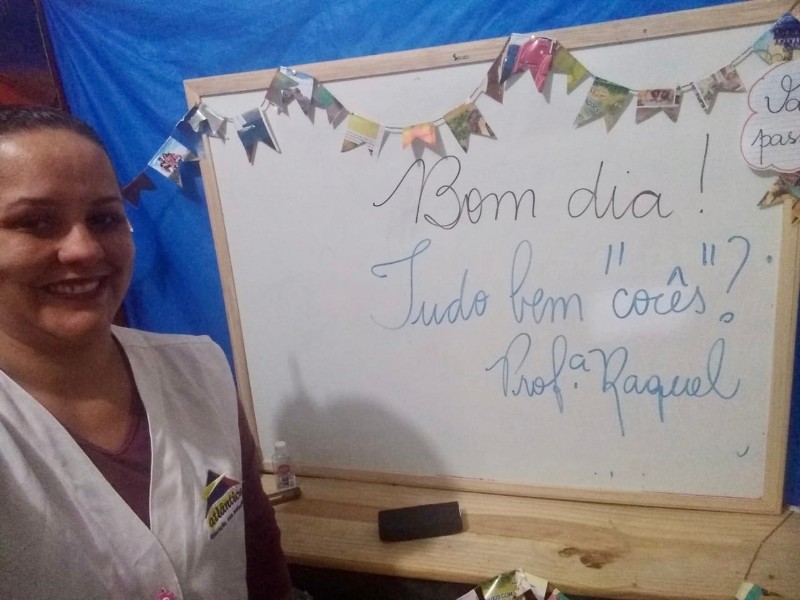 Bom dia!
Tudo bem "cocês"?
Prof.ª Raquel
Va
pas
atlântico